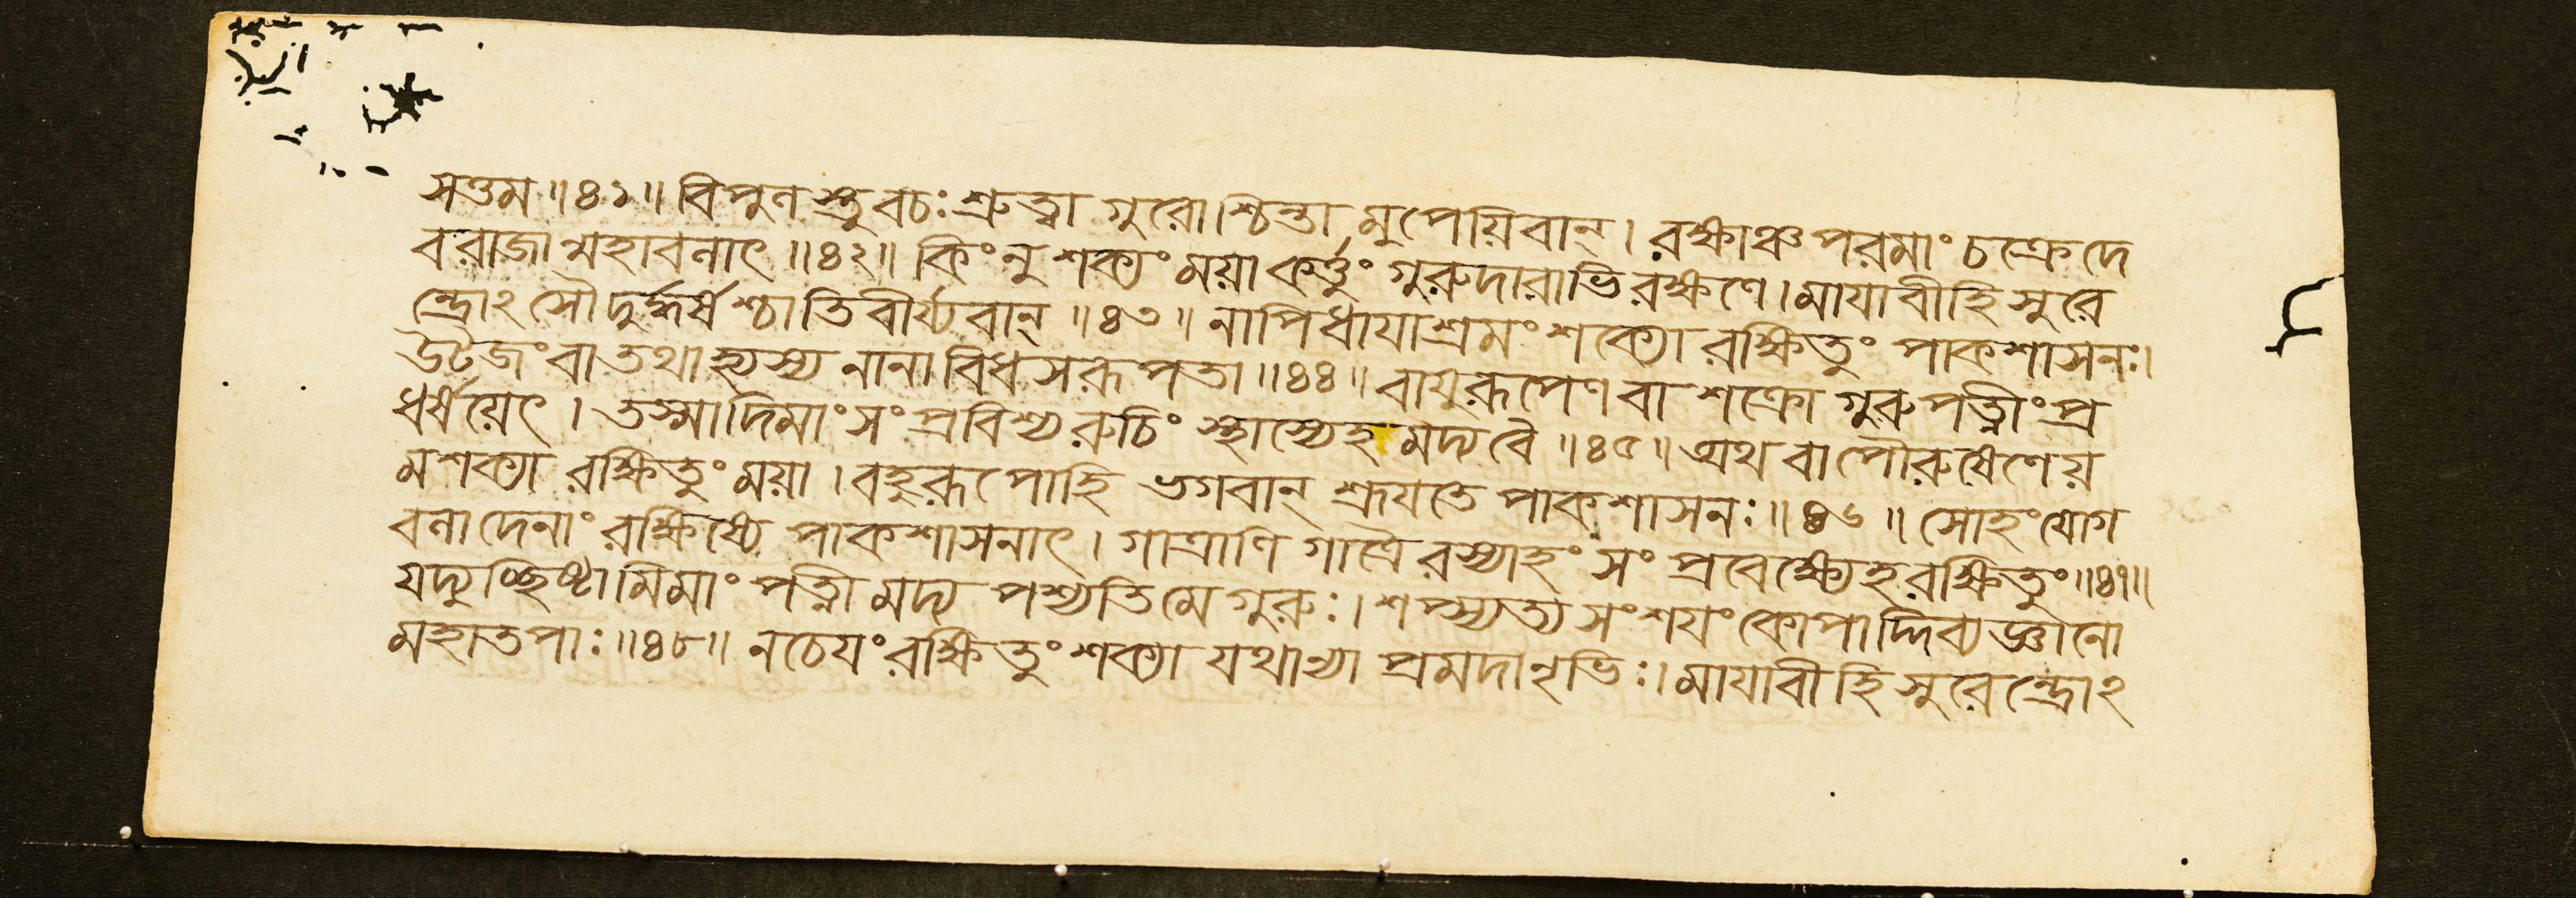 সত্তম॥৪১॥বিপুলস্তুবচঃশ্রুত্বা গুরোশ্চিন্তামুপেয়িবান্।রক্ষাঞ্চপরমাংচক্রেদে
বরাজান্মহাবলাৎ॥৪২॥কিংনু শক্যংময়াকর্ত্তুং গুরুদারাভিরক্ষণে।মাযাবীহিসুরে
ন্দ্রোঽসৌদুর্দ্ধর্ষশ্চাতিবীর্য্যবান্॥৪৩॥নাপিধাযাশ্রমংশক্যো রক্ষিতুং পাকশাসনঃ।
উটজংবাতথাহ্যস্য নানাবিধসরূপতা॥৪৪॥বাযুরূপেণবা শক্রো গুরুপত্নীংপ্র
ধর্ষয়েৎ।তস্মাদিমাংসংপ্রবিশ্যরুচিং স্থাস্যেহমদ্যবৈ॥৪৫॥অথবাপৌরুষেণেয়
মশক্যা রক্ষিতুংময়া।বহুরূপোহি ভগবান্ শ্রূযতে পাকশাসনঃ॥৪৬॥সোহংযোগ
বলাদেনাংরক্ষিষ্যে পাকশাসনাৎ।গাত্রাণি গাত্রৈরস্যাহং সং প্রবেক্ষ্যেহরক্ষিতুং॥৪৭॥
যদ্যুচ্ছিষ্টামিমাং পত্নীমদ্য পশ্যতিমেগুরুঃ।শপ্স্যত্যসংশযংকোপাদ্দিব্যজ্ঞানো
মহাতপাঃ॥৪৮॥নচেযংরক্ষিতুংশক্যা যথান্যা প্রমদানৃভিঃ।মাযাবীহিসুরেন্দ্রোঽ